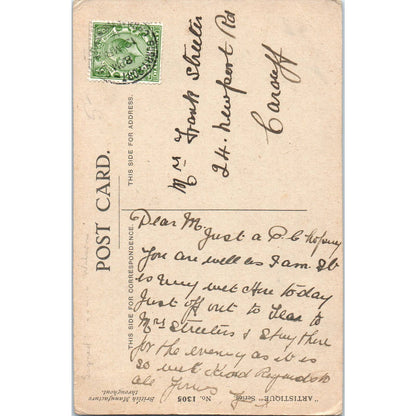 POST CARD.
THIS SIDE FOR CORRESPONDENCE.
THIS SIDE FOR ADDRESS.
Mrs Frank Streeter
24. Newport Rd
Cardiff
Dear M,
Just a P.C hoping
You are well as I am. It
is very wet Here today
Just off out to Tea to
Mrs Streeters & Stay there
for the evening as it is
so wet Kind Regards to
all Yours
"ARTISTIQUE" Series
No. 1305
British Manufacture
throughout.